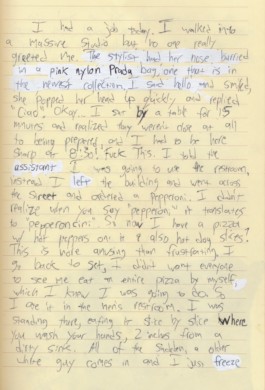 I had a job today. I walked into
a massive studio but no one really
greeted me. The stylist had her nose buried
in a pink nylon Prada bag, one that is in
the newest collection. I said hello and smiled,
she popped her head up quickly and replied
"Ciao". Okay. I sat by a table for 15
minutes and realized they weren't close at all
to being prepared, and I had to be here
sharp at 8:30! Fuck this. I told the
assistant I was going to use the restroom,
instead I left the building and went across
the street and ordered a pepperoni. I didn't
realize when you say "pepperoni" it translates
to pepperoncini. So now I have a pizza
w/ hot peppers on it & also hot dog slices?
This is more amusing than frustrating. I
go back to set, I didn't want everyone
to see me eat an entire pizza by myself,
which I knew I was going to do, so
I ate it in the men's restroom. I was
standing there, eating it slice by slice where
you wash your hands, 2 inches from a
dirty sink. All of the sudden, a older
white guy comes in and I just freeze